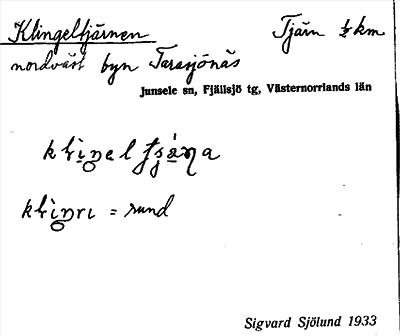 Klingeltjärnen Tjärn ½ km
nordväst byn Tarasjönäs
Junsele sn, Fjällsjö tg, Västernorrlands län
= rund
Sigvard Sjölund 1933